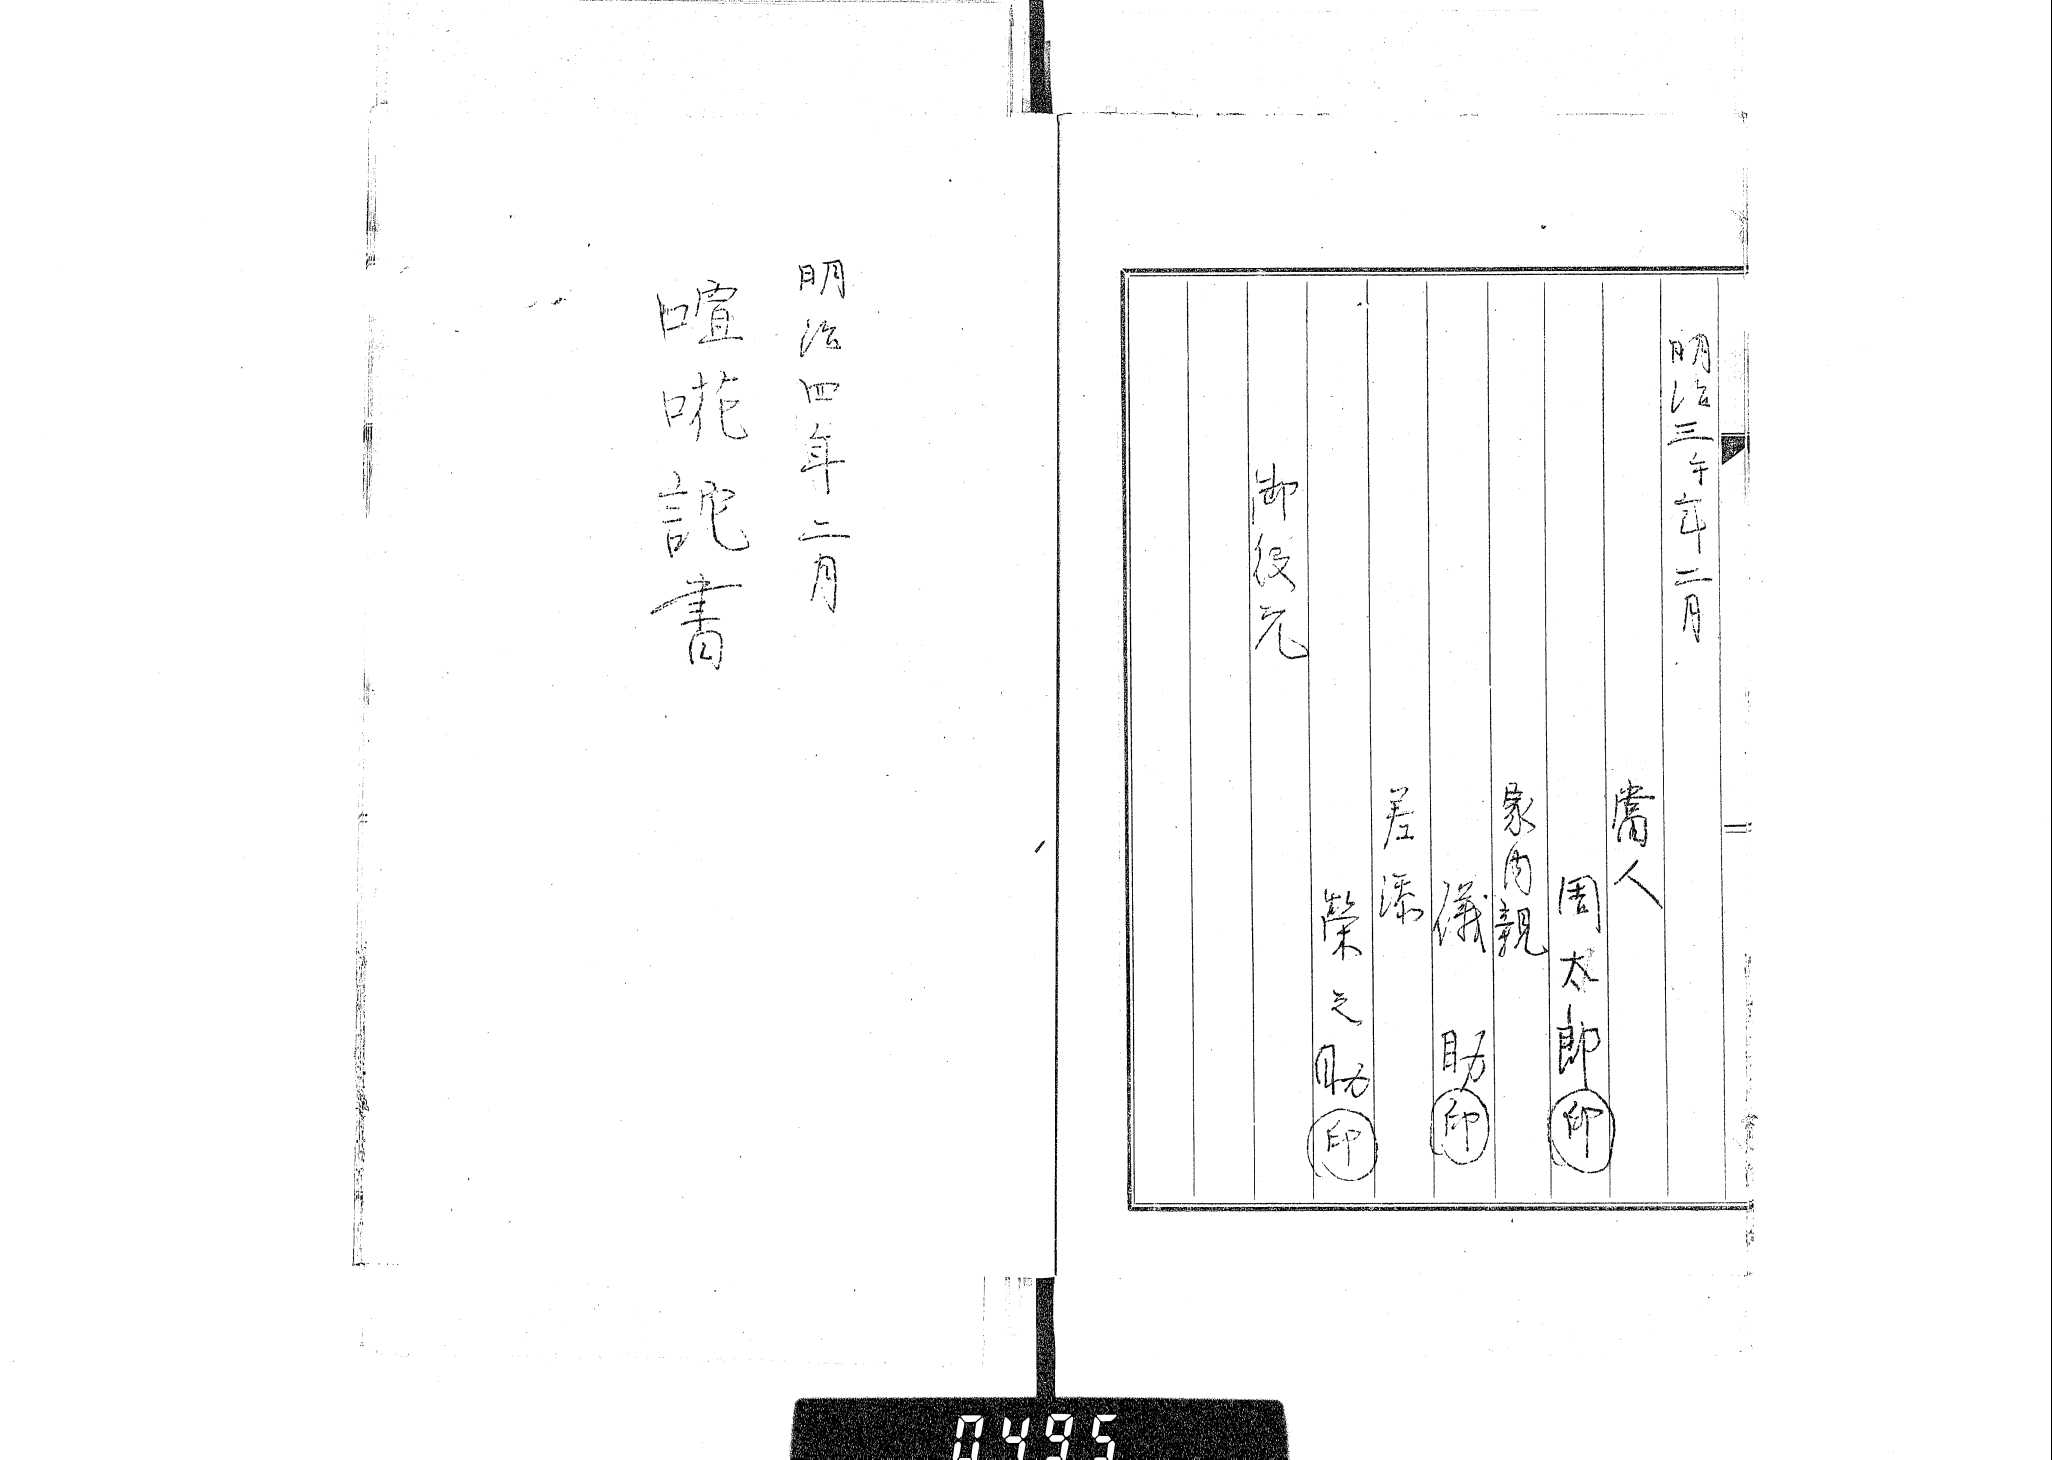 明治三午年二月
當人
周太郎㊞
家内親
儀助㊞
差添
榮之助㊞
御役元
明治四年二月
喧嘩詫書
0495